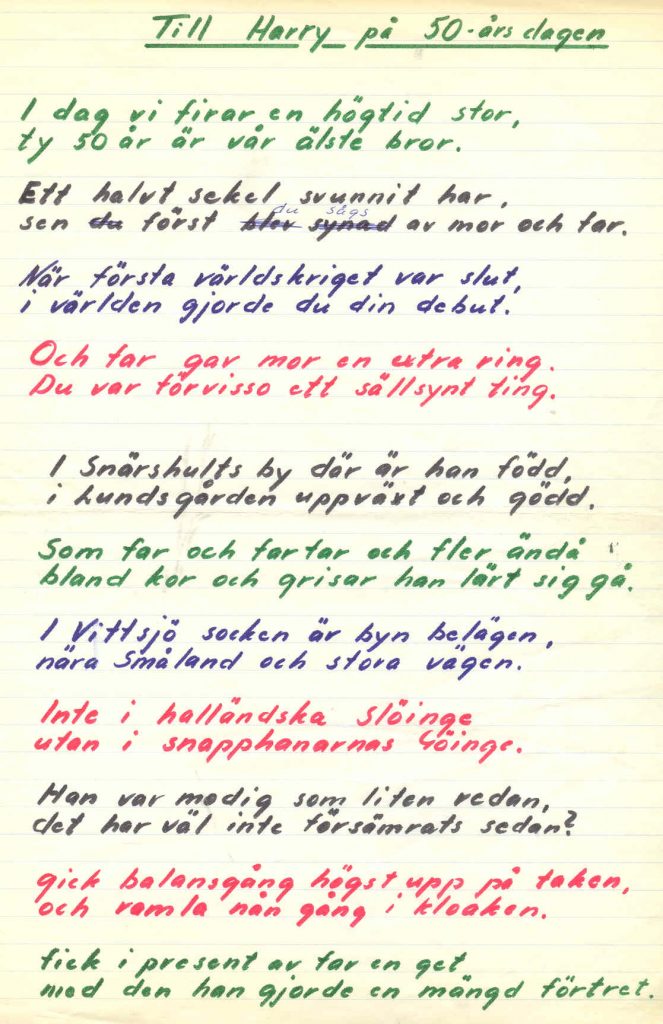 Till Harry på 50-årsdagen
I dag vi firar en högtid stor,
ty 50 år är vår älste bror.
Ett halvt sekel svunnit har,
du sågs
sen du först blev synad av mor och far.
När första världskriget var slut,
i världen gjorde du din debut.
Och far gav mor en extra ring.
Du var förvisso ett sällsynt ting.
I Snärshults by där är han född,
i Lundsgården uppväxt och gödd.
Som far och farfar och fler ändå
bland kor och grisar han lärt sig gå.
I Vittsjö socken är byn belägen,
nära Småland och stora vägen.
Inte i halländska Slöinge
utan i snapphanarnas Göinge.
Han var modig som liten redan,
det har väl inte försämrats sedan?
gick balansgång högst upp på taken,
och ramla nån gång i kloaken.
fick i present av far en get
med den han gjorde en mängd förtret.